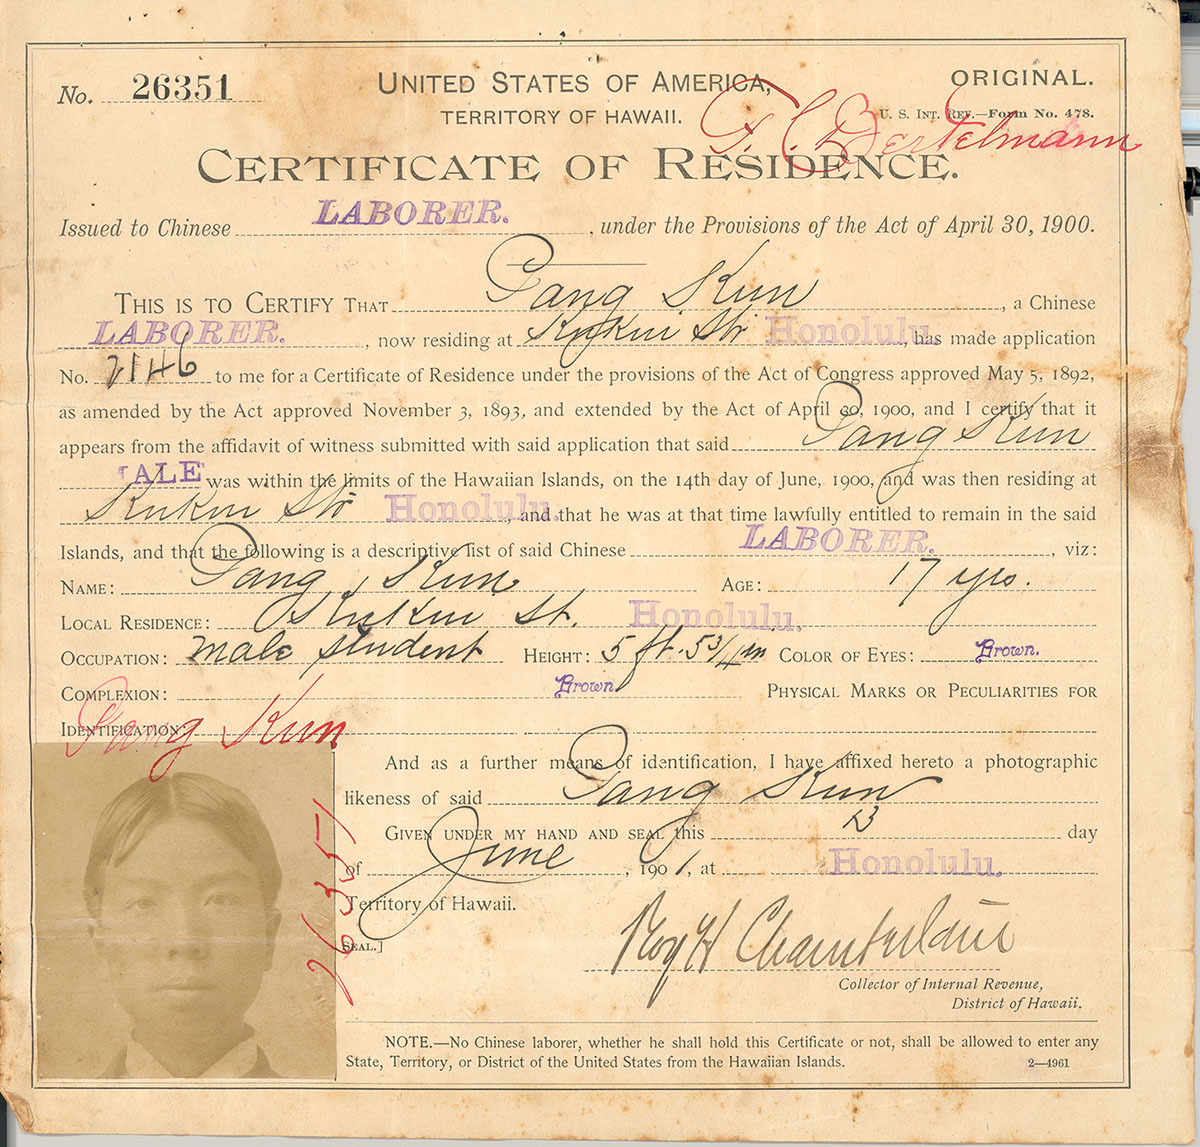 No. 26351
UNITED STATES OF AMERICA,
ORIGINAL.
TERRITORY OF HAWAII.
U. S. INT. REV.—FORM No. 478.
F. C. Bertelmann
CERTIFICATE OF RESIDENCE.
Issued to Chinese LABORER. , under the Provisions of the Act of April 30, 1900.
THIS IS TO CERTIFY THAT Pang Kun , a Chinese
LABORER. , now residing at Kukui Str Honolulu. , has made application
No. 2146 to me for a Certificate of Residence under the provisions of the Act of Congress approved May 5, 1892,
as amended by the Act approved November 3, 1893, and extended by the Act of April 30, 1900, and I certify that it
appears from the affidavit of witness submitted with said application that said Pang Kun
MALE was within the limits of the Hawaiian Islands, on the 14th day of June, 1900, and was then residing at
Kukui Str Honolulu. , and that he was at that time lawfully entitled to remain in the said
Islands, and that the following is a descriptive list of said Chinese LABORER. , viz:
NAME: Pang Kun AGE: 17 yrs.
LOCAL RESIDENCE: Kukui St. Honolulu.
OCCUPATION: male student HEIGHT: 5 ft. 5 3/4 in COLOR OF EYES: Brown.
COMPLEXION: Brown. PHYSICAL MARKS OR PECULIARITIES FOR
IDENTIFICATION:
Pang Kun
And as a further means of identification, I have affixed hereto a photographic
likeness of said Pang Kun
GIVEN UNDER MY HAND AND SEAL this 13 day
of June , 1901, at Honolulu.
Territory of Hawaii.
SEAL.]
26351
Roy H Chamberlain
Collector of Internal Revenue,
District of Hawaii.
NOTE.—No Chinese laborer, whether he shall hold this Certificate or not, shall be allowed to enter any
State, Territory, or District of the United States from the Hawaiian Islands.
2—4961